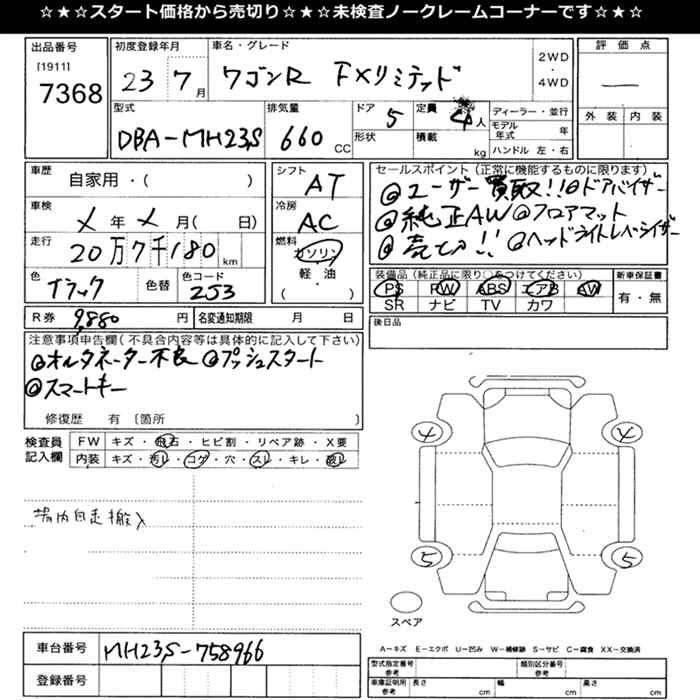 ☆★☆★スタート価格から売切り☆★☆★未検査ノークレームコーナーです☆★☆
出品番号 初度登録年月 車名・グレード 2WD ・ 4WD 評価点
[1911]
7368 23 7月 ワゴンR FXリミテッド ―
型式 排気量 ドア 5 定員 4人 ディーラー・並行 外装 内装
DBA-MH23S 660 CC 形状 積載 kg モデル年式 年
ハンドル 左・右
車歴 自家用・( ) シフト AT セールスポイント(正常に機能するものに限ります)
◎ユーザー買取!!◎ドアバイザー
車検 メ年メ月( 日) 冷房 AC ◎純正AW◎フロアマット
走行 20万7千180km 燃料 ガソリン ◎売切!! ◎ヘッドライトレベライザー
軽・油
( )
色 ブラック 色替 色コード 2S3 装備品(純正品に限り○をつけてください) 新車保証書
PS PW ABS エアB AW 有・無
SR ナビ TV カワ
R券 9,880円 名変通知期限 月 日 後日品
注意事項申告欄(不具合内容等は具体的に記入して下さい)
◎オルタネーター不良◎プッシュスタート
◎スマートキー
修復歴 有 〔箇所 〕
検査員記入欄 FW キズ・飛石・ヒビ割・リペア跡・X要
内装 キズ・汚レ・コゲ・穴・スレ・キレ・破レ
4 4
場内自走搬入
5 5
スペア
車台番号 MH23S-758966
A-キズ E-エクボ U-凹み W-補修跡 S-サビ C-腐食 XX-交換済
型式指定番号 参考 類別区分番号 参考
登録番号 車庫証明用 参考 長さ cm 幅 cm 高さ cm